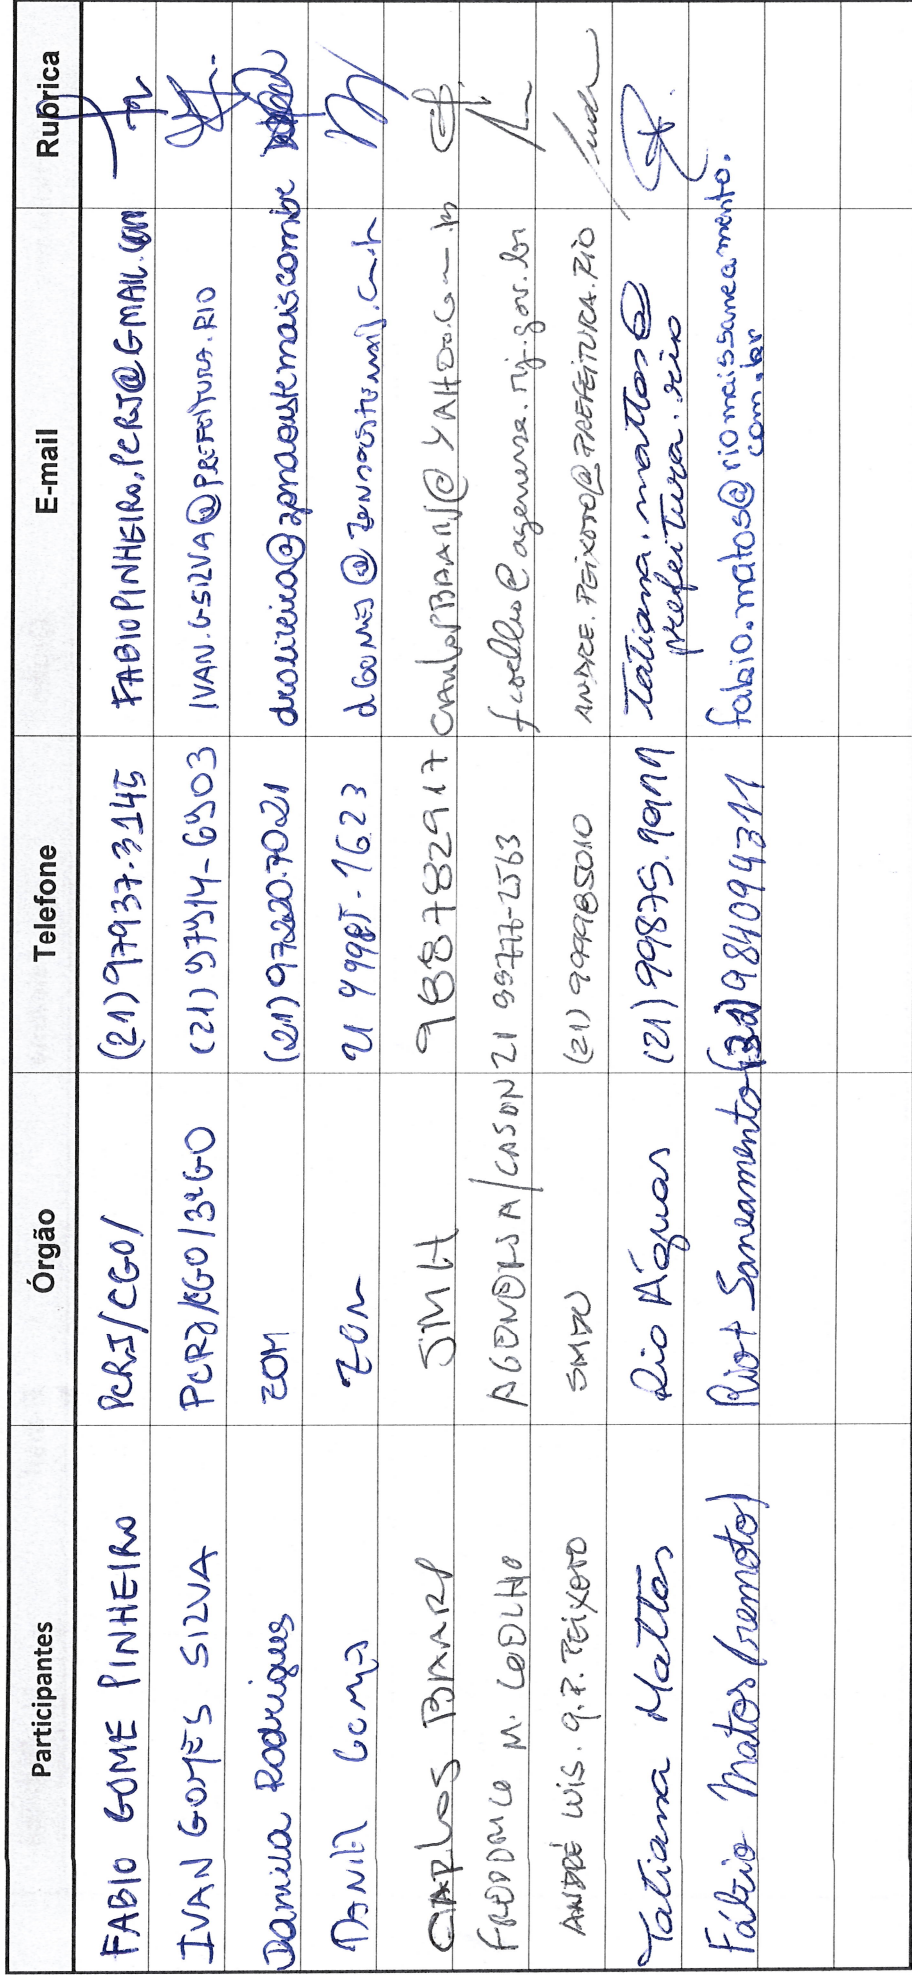 Participantes Órgão Telefone E-mail Rubrica
FABIO GOME PINHEIRO PCRJ/CGO/ (21) 97937-3145 FABIOPINHEIRO.PCRJ@GMAIL.COM
IVAN GOMES SILVA PCRJ/CGO/3ªGO (21) 97914-6903 IVAN.GSILVA@PREFEITURA.RIO
Daniela Rodrigues ZOM (21) 97220.7021
DANIEL Gomes ZOM 21 99985-1623
CARLOS SMH 988782917
FREDERICO M. COELHO AGENERSA/CASAN 21 99776-2563 fcoelho@agenersa.rj.gov.br
ANDRÉ LUIS G.P. PEIXOTO SMDU (21) 999985010 ANDRE.PEIXOTO@PREFEITURA.RIO
Tatiana Mattos Rio Águas (21) 99875.9911 tatiana.mattos@
prefeitura.rio
Fábio Matos (remoto) Rio+ Saneamento 984094311 fabio.matos@riomaissaneamento.
com.br